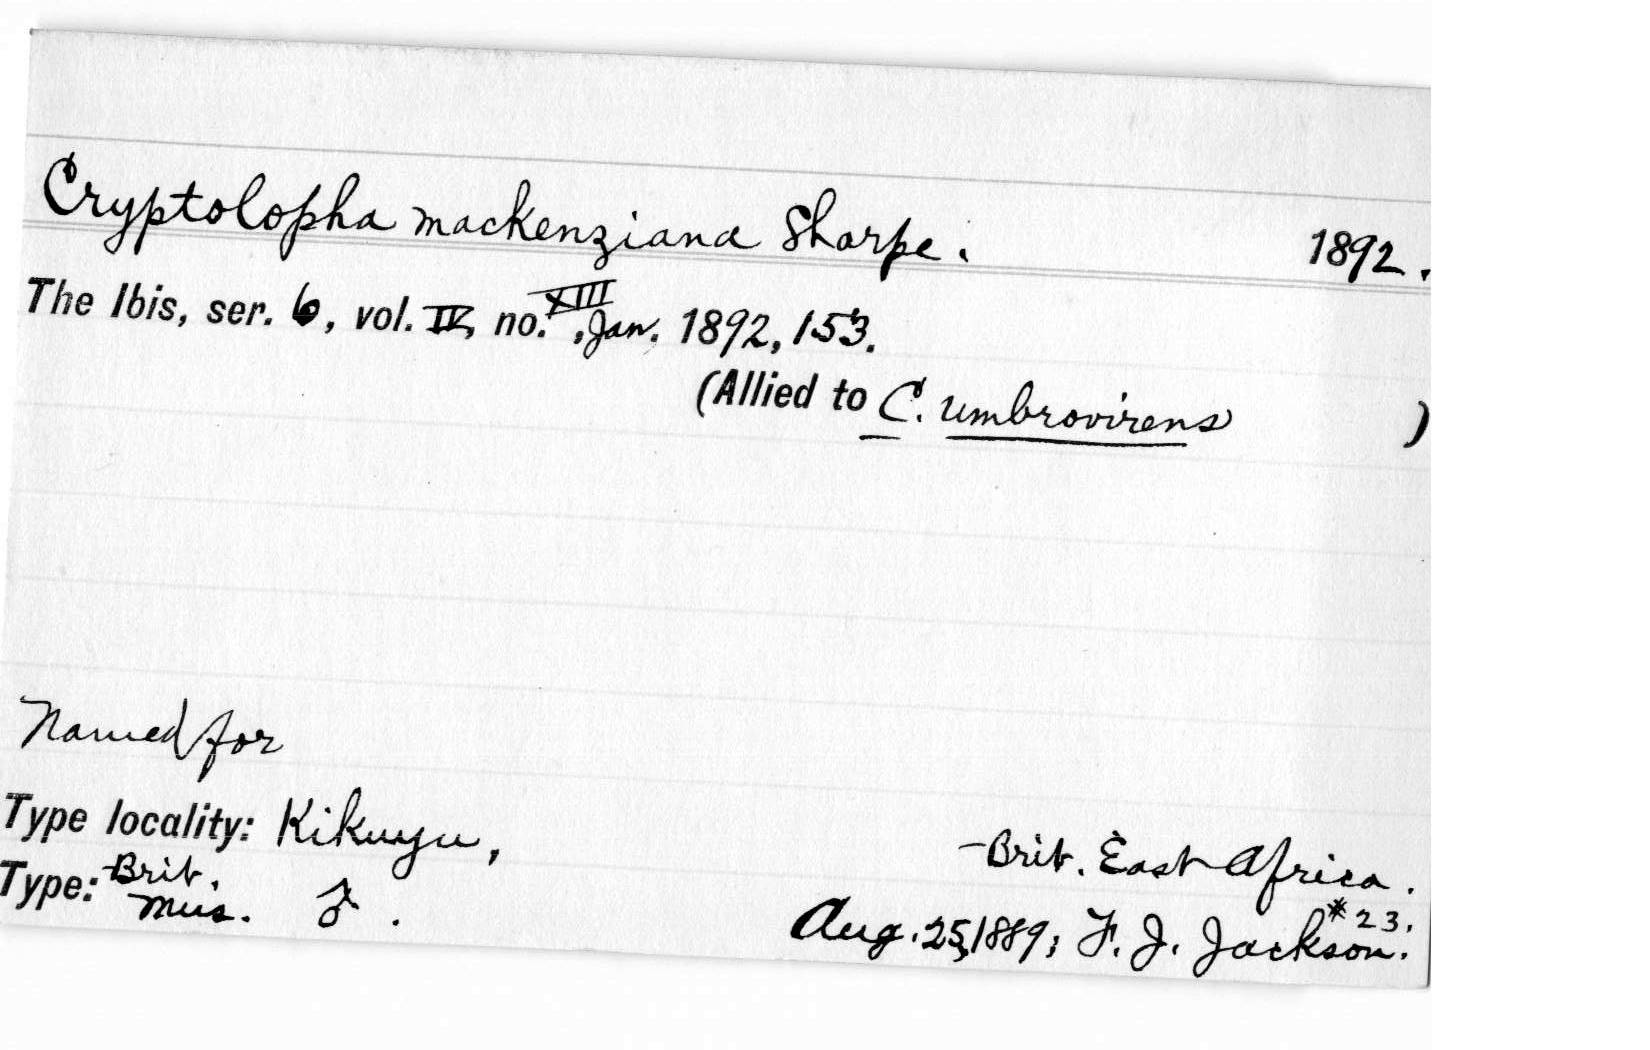 Cryptolopha mackenziana Sharpe. 1892.
The Ibis, ser. 6, vol. IV, no. XIII, Jan. 1892, 153.
(Allied to C. umbrovirens )
Named for
Type locality: Kikuyu, Brit. East Africa.
Type: Brit. Mus. ♂. Aug. 25, 1889; F. J. Jackson. #23.